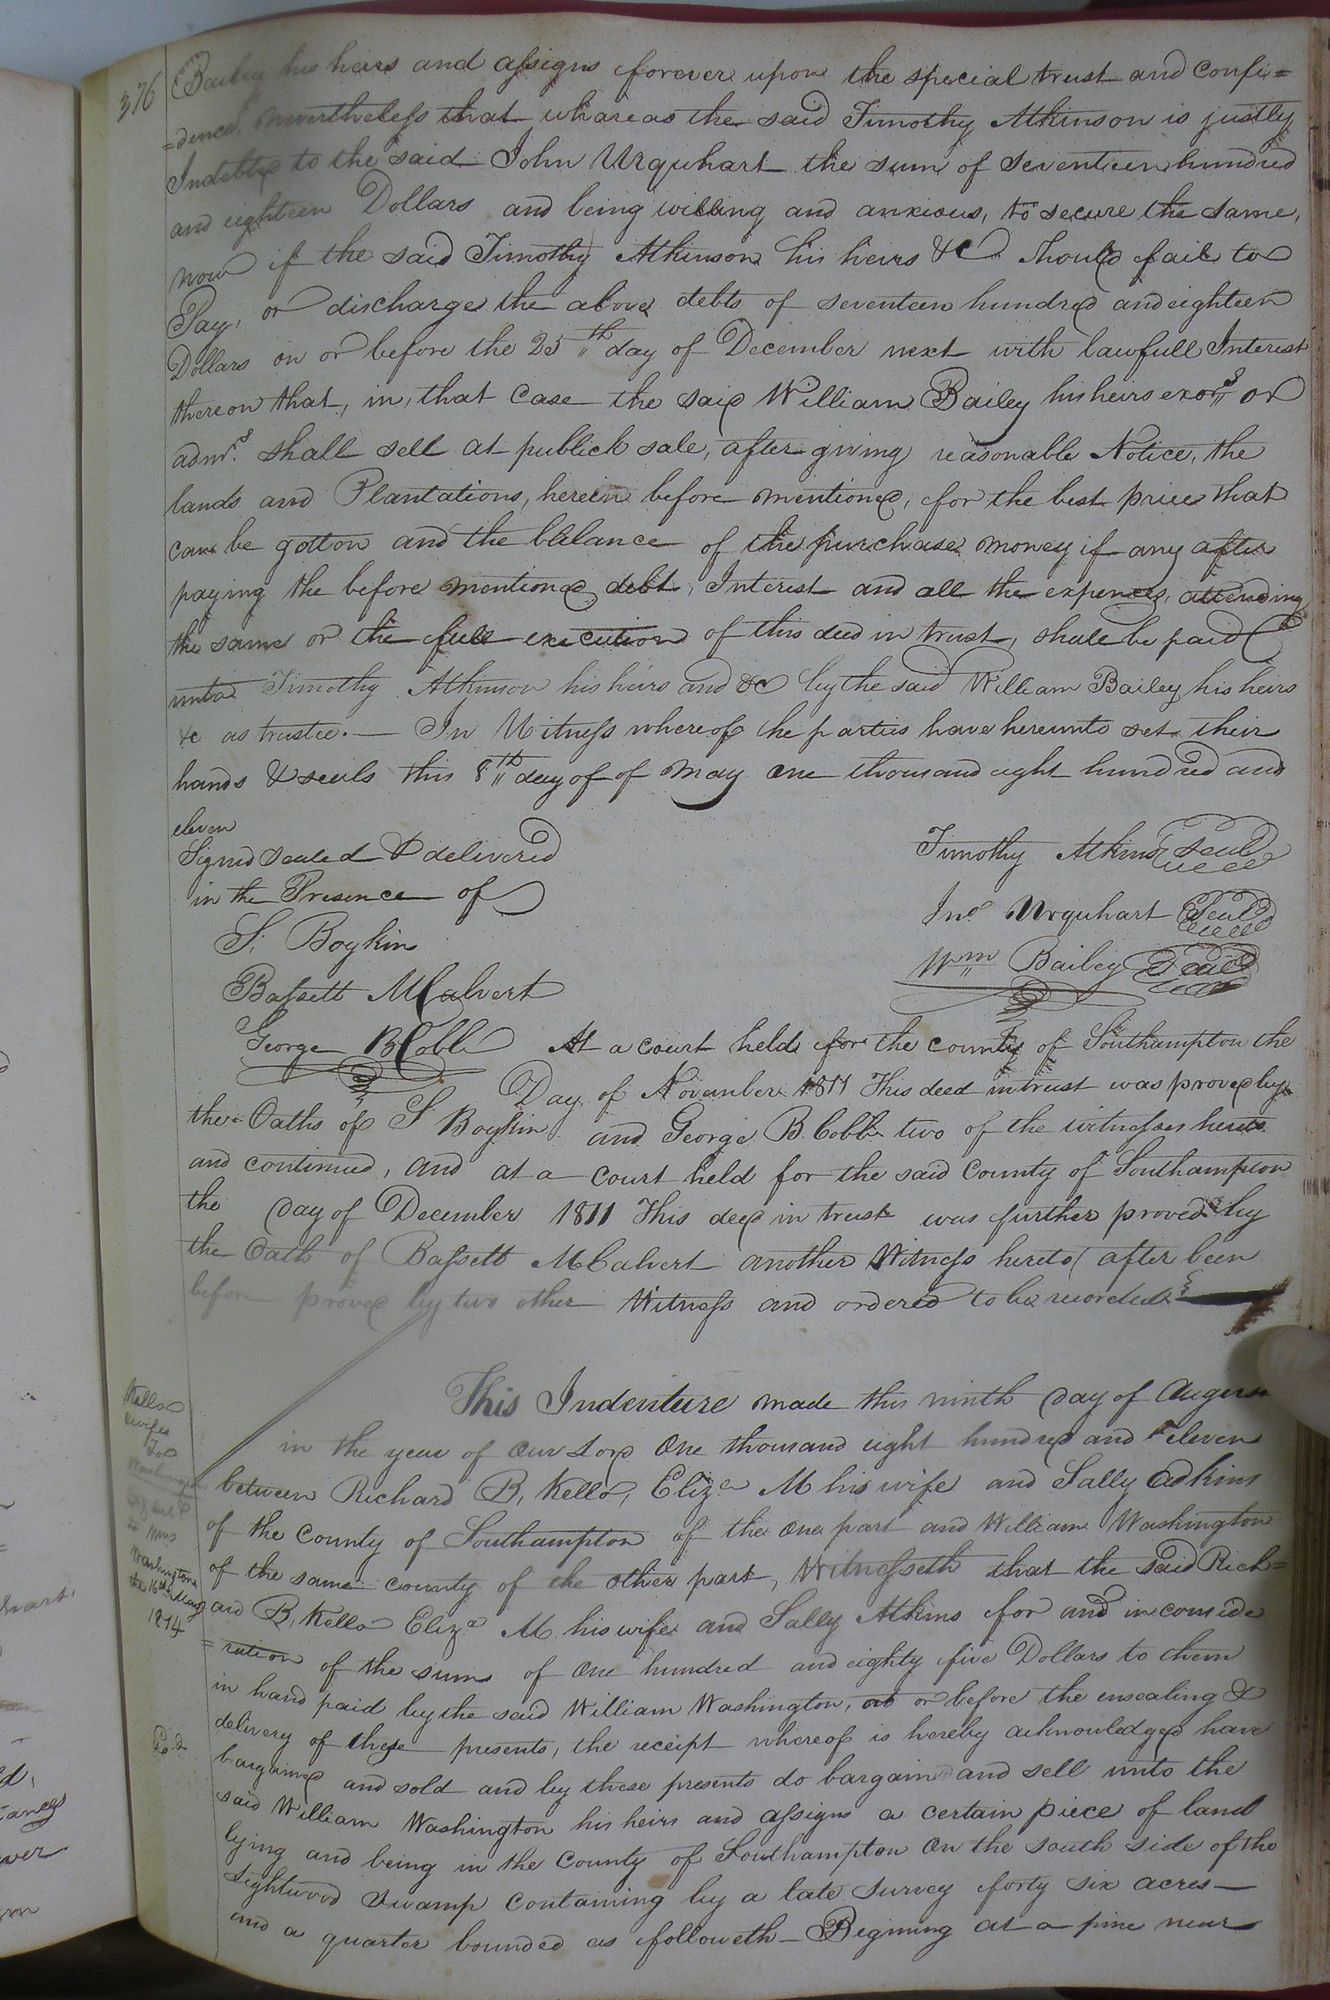 376
Bailey his heirs and assigns forever upon the special trust and confi=
=dence, nevertheless that whareas the said Timothy Atkinson is justly
Indebted to the said John Urquhart the sum of seventeen hundred
and eighteen Dollars and being willing and anxious, to secure the same,
now if the said Timothy Atkinson his heirs &c should fail to
Pay, or discharge the above debts of seventeen hundred and eighteen
Dollars on or before the 25th day of December next with lawfull Interest
thereon that, in, that case the said William Bailey his heirs exors or
admrs shall sell at publick sale, after giving reasonable Notice, the
lands and Plantations, herein before mentioned, for the best price that
can be gotton and the ballance of the purchase money if any after
paying the before mentioned debt, Interest and all the expences, attending
the same or the full execution of this deed in trust, shall be paid
unto Timothy Atkinson his heirs and &c by the said William Bailey his heirs
&c as trustee. — In Witness whereof the parties have hereunto set their
hands & seals this 8th day of of May one thousand eight hundred and
eleven
Signed sealed & delivered
in the Presence of
S. Boykin
Bassett M Calvert
George B Cobb
Timothy Atkins Seal
Jno Urquhart Seal
Wm Bailey Seal
At a court held for the county of Southampton the
Day of November 1811 This deed in trust was proved by
the Oaths of S Boykin and George B. Cobb two of the witnesses hereto
and continued, and at a court held for the said County of Southampton
the day of December 1811 This deed in trust was further proved by
the Oath of Bassett M Calvert another Witness hereto after been
before proved by two other Witness and ordered to be recorded
This Indenture made this ninth day of August
in the year of our Lord One thousand eight hundred and eleven
between Richard B. Kello, Eliza M his wife and Sally Adkins
of the County of Southampton of the one part and William Washington
of the same county of the other part, Witnesseth that the said Rich=
ard B. Kello Eliza M. his wife and Sally Atkins for and in conside
=ration of the sum of one hundred and eighty five Dollars to them
in hand paid by the said William Washington, at or before the ensealing &
delivery of these presents, the receipt whereof is hereby acknowledged have
bargained and sold and by these presents do bargain and sell unto the
said William Washington his heirs and assigns a certain piece of land
lying and being in the County of Southampton On the south side of the
Lightwood Swamp Containing by a late survey forty six acres —
and a quarter bounded as followeth — Begining at a pine near
Kello
wife
To
Washington
to Wm
Washington
the 16th May
1814